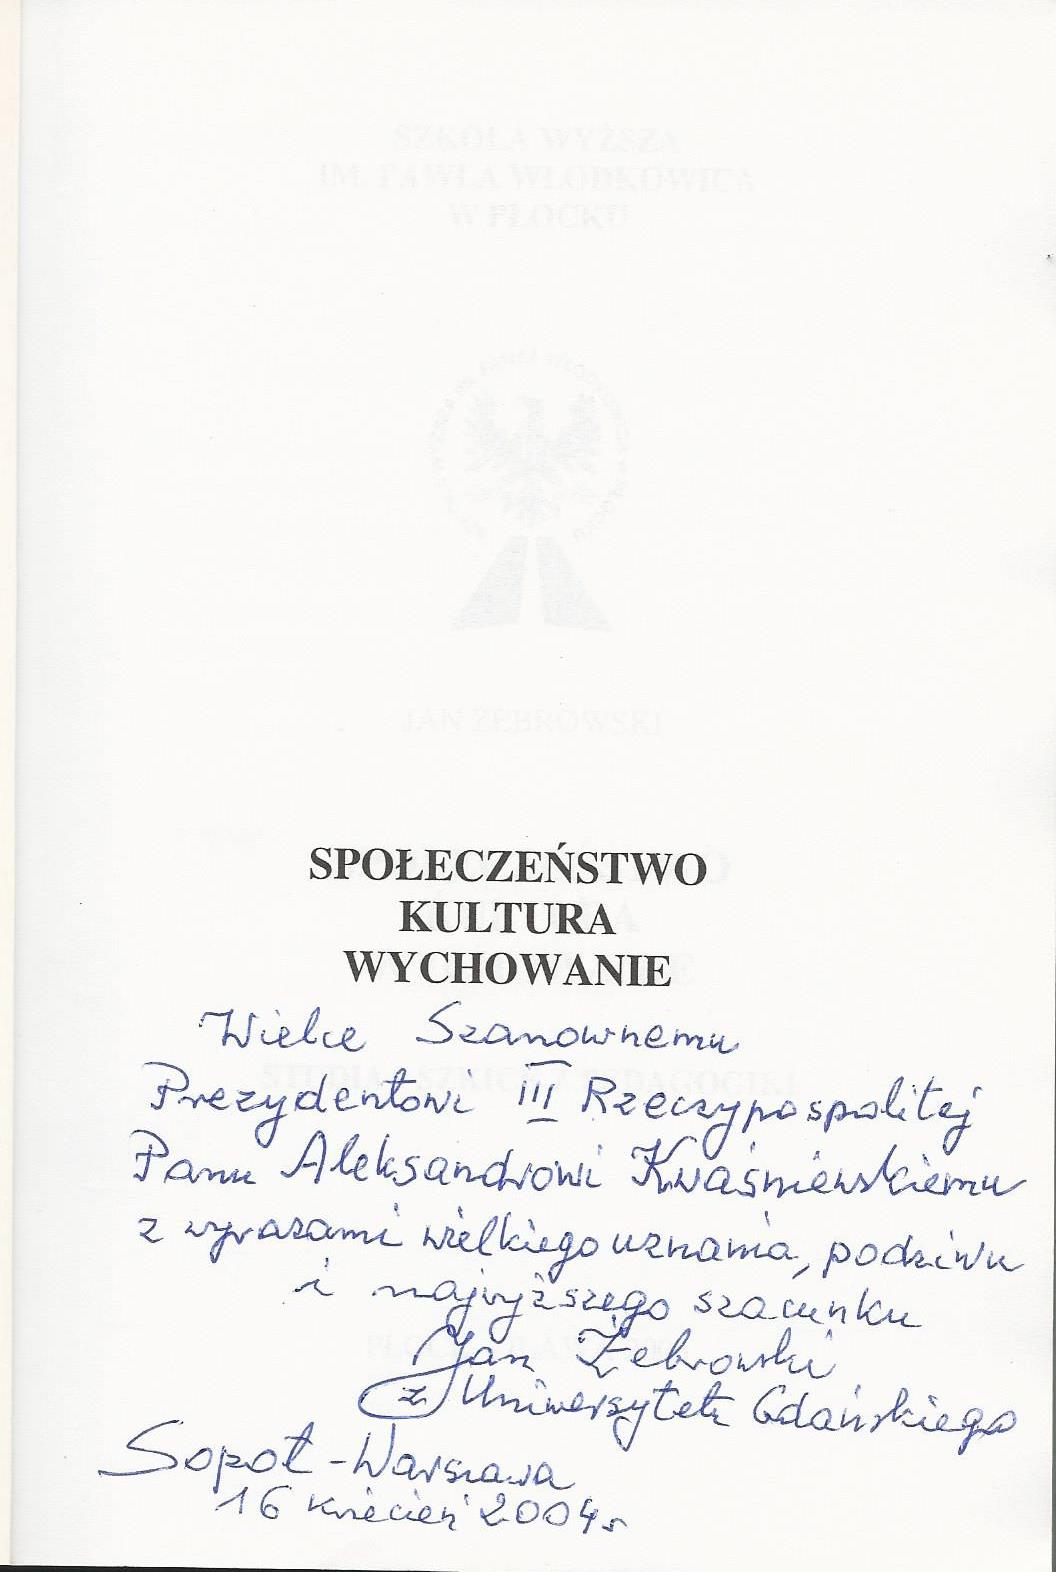 SZKOŁA WYŻSZA
IM. PAWŁA WŁODKOWICA
W PŁOCKU
JAN ŻEBROWSKI
SPOŁECZEŃSTWO
KULTURA
WYCHOWANIE
Wielce Szanownemu
Prezydentowi III Rzeczypospolitej
Panu Aleksandrowi Kwaśniewskiemu
z wyrazami wielkiego uznania, podziwu
i najwyższego szacunku
Jan Żebrowski
z Uniwersytetu Gdańskiego
Sopot - Warszawa
16 kwiecień 2004 r